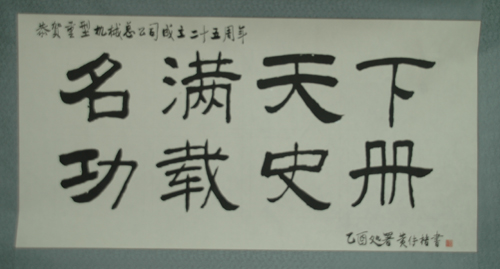 恭贺重型机械总公司成立二十五周年
名满天下
功载史册
乙酉处署黄仔楷書